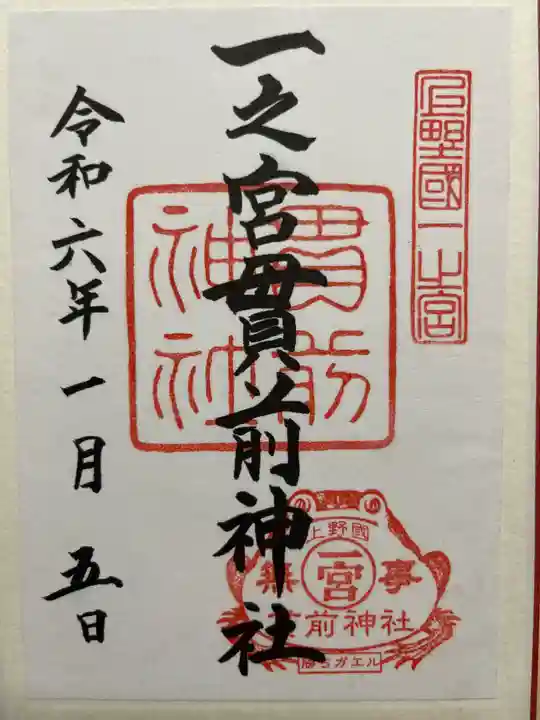 上野國一之宮
一之宮貫前神社
貫前
神社
上野國
無一宮事
貫前神社
勝ちガエル
令和六年一月五日